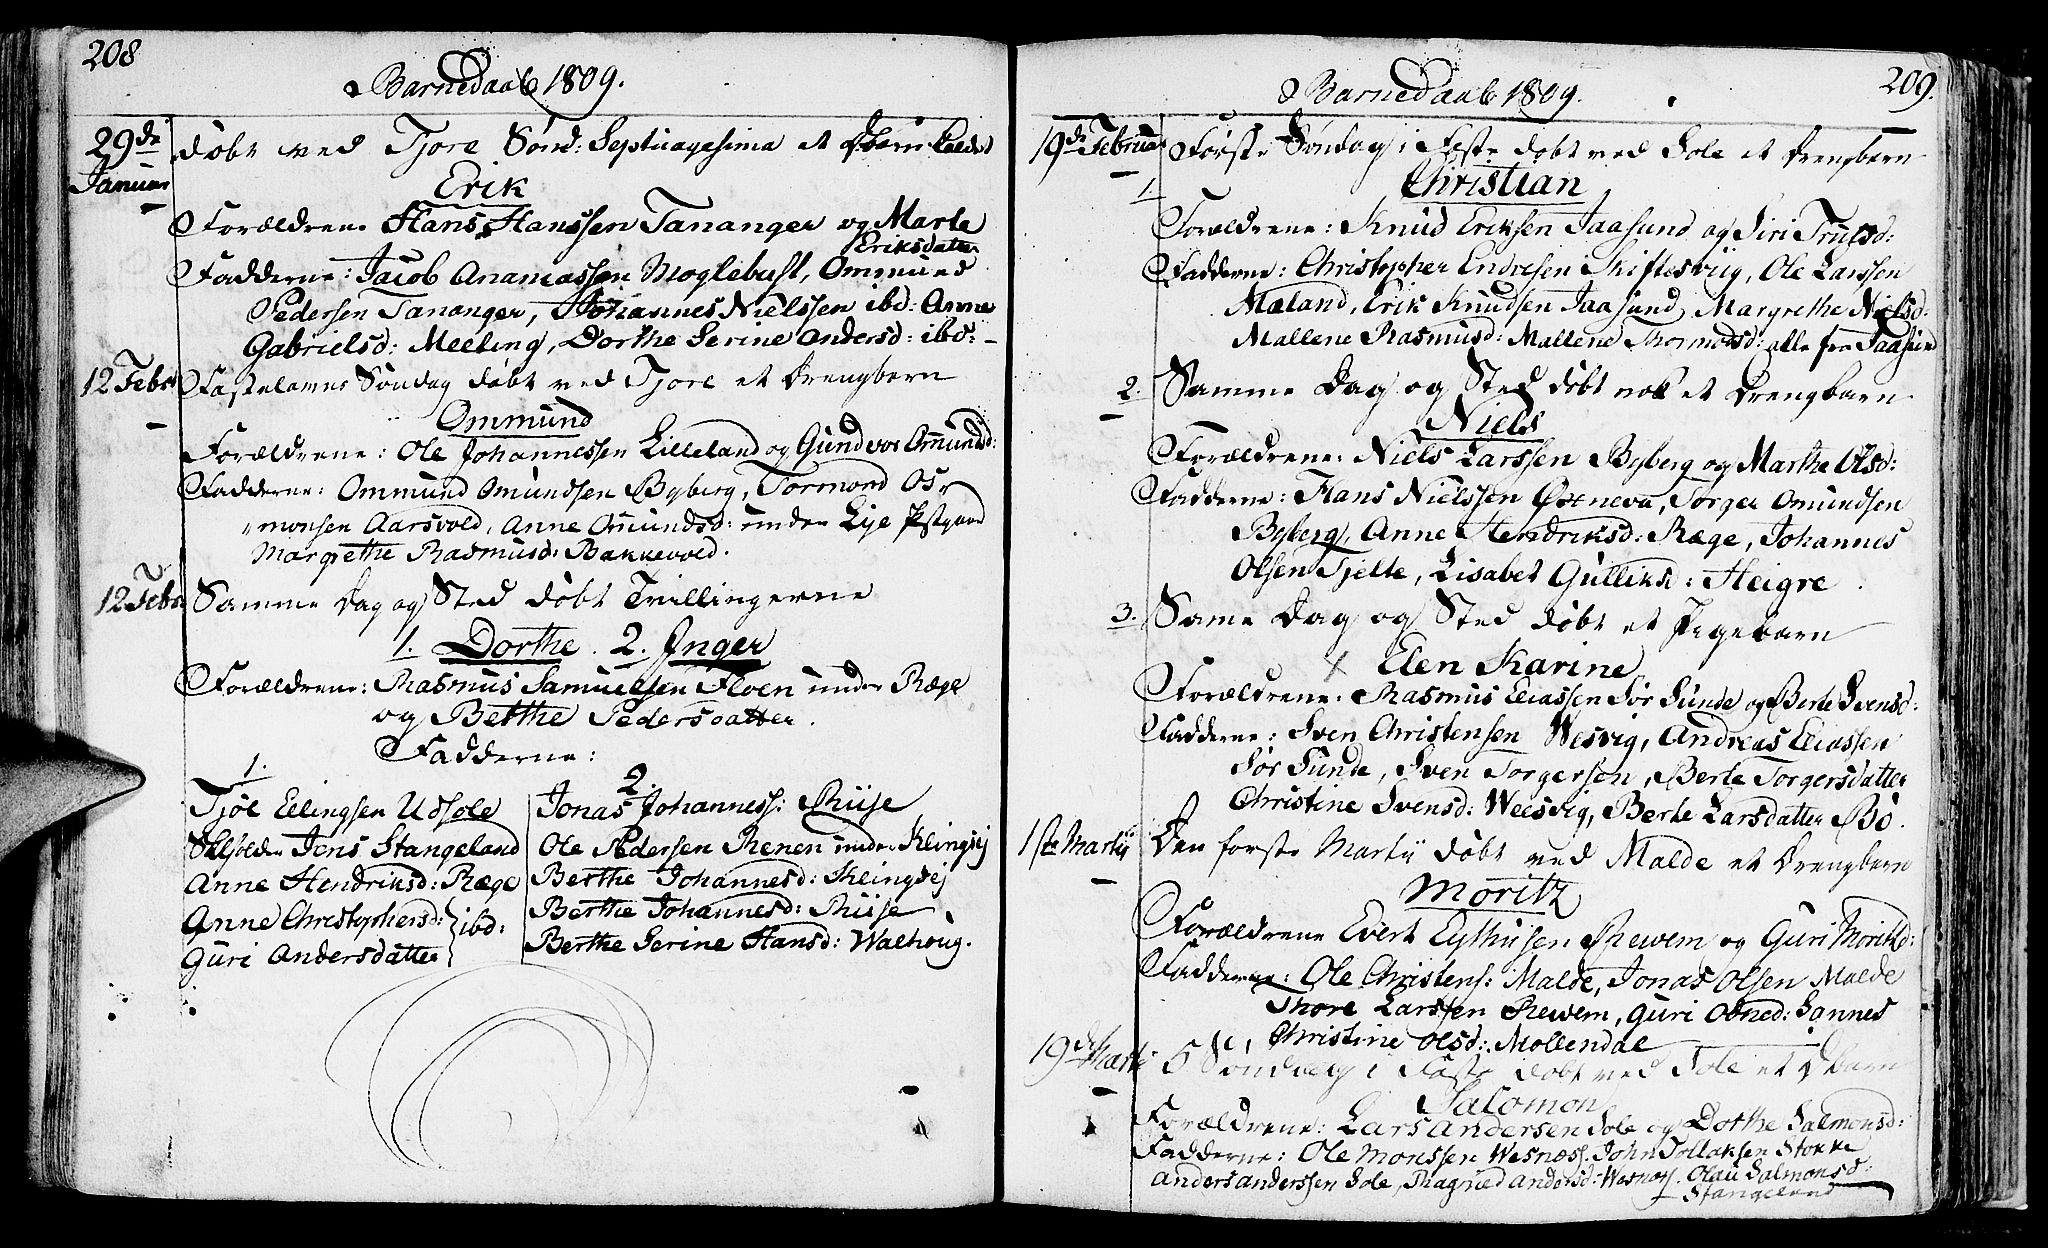 208
Barnedaab 1809.
29de Januar
døbt ved Tjore Sønd: Septuagesima et Dbarn kaldet
Erik
Forældrene Hans Hanssen Tananger og Marte
Eriksdatter
Fadderne: Jacob Ananiassen Moglebust, Ommund
Pedersen Tananger, Johannes Nielssen ibd: Anne
Gabrielsd: Meeling, Dorthe Serine Andersd: ibd:
12 Febr
Fastelavns Søndag døbt ved Tjore et Drengbarn
Ommund
Forældrene: Ole Johannessen Lilleland og Gundvor Omunds
Fadderne: Ommund Omundsen Byberg, Tormond Os
monsen Aarsvold, Anne Omundsd: under Lye
Margrethe Rasmusd: Bakkevold.
12 Febr
Samme Dag og Sted døbt Tvillingerne
1. Dorthe. 2. Inger
Forældrene: Rasmus Samuelsen Floen under Ræge
og Berthe Pedersdatter.
Fadderne:
1.
Tjøl Ellingsen Udsole
Jens Stangeland
Anne Hendriksd: Ræge
Anne Christophersd: } ibd:
Guri Andersdatter
2.
Jonas Johanness: Riise
Ole Pedersen Renen under Klingsej
Berthe Johannesd: Kleingsej
Berthe Johannesd: Riise
Berthe Serine Hansd: Walhoug.
209.
Barnedaab 1809.
19de Februar
Første Søndag i Faste døbt ved Sole et Drengbarn
1.
Christian
Forældrene: Knud Eriksen Jaasund og Siri Trulsd:
Fadderne: Christopher Endresen Skiftesviig, Ole Larssen
Mæland, Erik Knudsen Jaasund, Margrethe Nielsd:
Mallene Rasmusd: Mallene Thormodsd: alle fra Jaasund
2.
Samme Dag og Sted døbt nok et Drengbarn
Niels
Forældrene: Niels Larssen Byberg og Marthe Olsd:
Fadderne: Hans Nielssen Øxneva, Torger Omundsen
Byberg, Anne Hendriksd: Ræge, Johannes
Olsen Tjelte, Lisabet Gulliksd: Heigre
3.
Same Dag og Sted døbt et Pigebarn
x Elen Karine
Forældrene: Rasmus Eliassen Sør Sunde og Berte Svensd:
Fadderne: Sven Christensen Wesvig, Andreas Eliassen
Sør Sunde, Sven Torgersen, Berte Torgersdatter
Christine Svensd: Weesvig, Berte Larsdatter Bø.
1ste Martii
Den første Martii døbt ved Malde et Drengbarn
Moritz
Forældrene Evert Rewem og Guri Moritzd:
Fadderne: Ole Christens: Malde, Jonas Olsen Malde
Thore Larssen Rewem, Guri Obned: Sannes
Christine Olsd: Mollendal
19de Marti
5 Søndag i Faste døbt ved Sole et Dbarn
Salomon
Forældrene: Lars Andersen Sole og Dorthe Salmonsd:
Fadderne: Ole Monssen Wesnæs, John Tollaksen Stokke
Anders Anderssen Sole, Magred Andersd: Wesnæs. Olau Salmonsd:
Stangeland